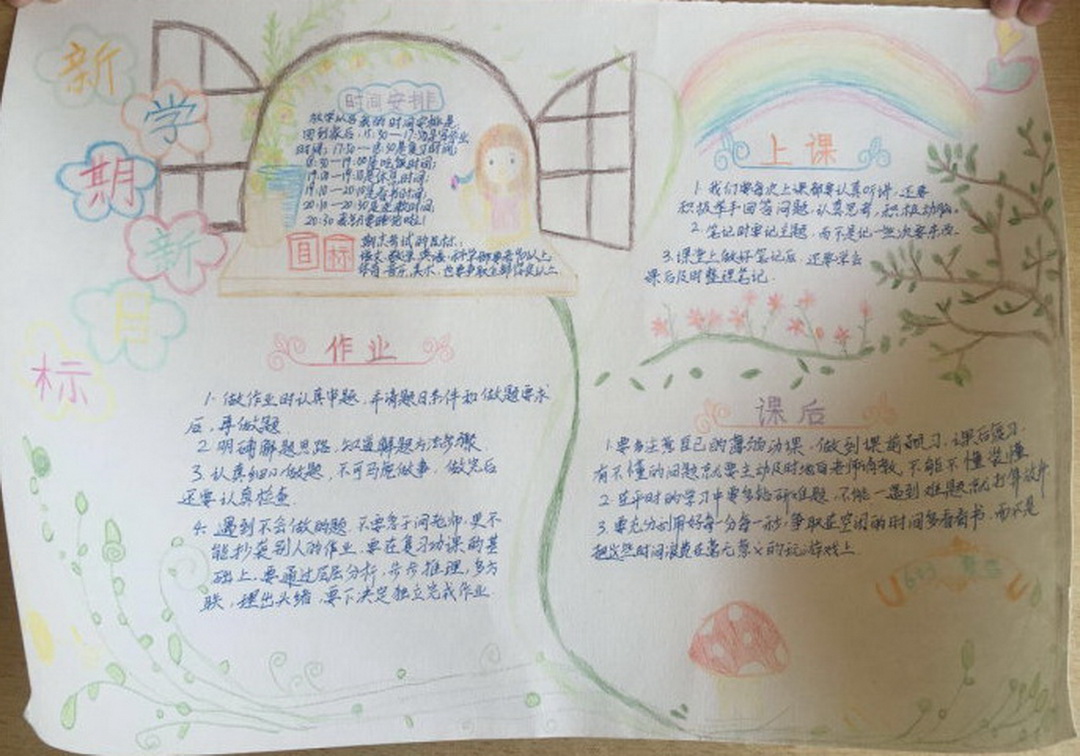 新学期新目标
时间安排
放学以后我的时间安排是
回到家后:15:30—17:30是写作业
时间;17:30—18:30是复习时间;
18:30—19:00是吃饭时间;
19:00—19:10是休息时间;
19:10—20:10是看书时间;
20:10—20:30是
20:30
目标
期末考试的目标:
语文、数学、英语、科学都要考
音乐、美术、也要争取全部
上课
1. 我们要每次上课都要认真听讲,还要
积极举手回答问题,认真思考,积极动脑。
2. 笔记时牢记主题,而不是记一些次要东西。
3. 课堂上做好笔记后,还要学会
课后及时整理笔记.
作业
1. 做作业时认真审题,弄清题目条件和做题要求
后,再做题
2. 明确解题思路,知道解题方法步骤
3. 认真细心做题,不可马虎做事,做完后
还要认真检查.
4. 遇到不会做的题,不要急于问老师,更不
能抄袭别人的作业,要在复习功课的基
础上,要通过层层分析,步步推理,多方
联,理出头绪,要下决定独立完成作业
课后
1. 要多注意自己的薄弱功课,做到课前预习,课后复习.
有不懂的问题就要主动及时地向老师请教,不能不懂装懂
2. 在平时的学习中要多钻研难题,不能一遇到难题就打算放弃
3. 要充分利用好每一分每一秒,争取在空闲的时间多看看书.而不是
把这些时间浪费在毫无意义的玩游戏上